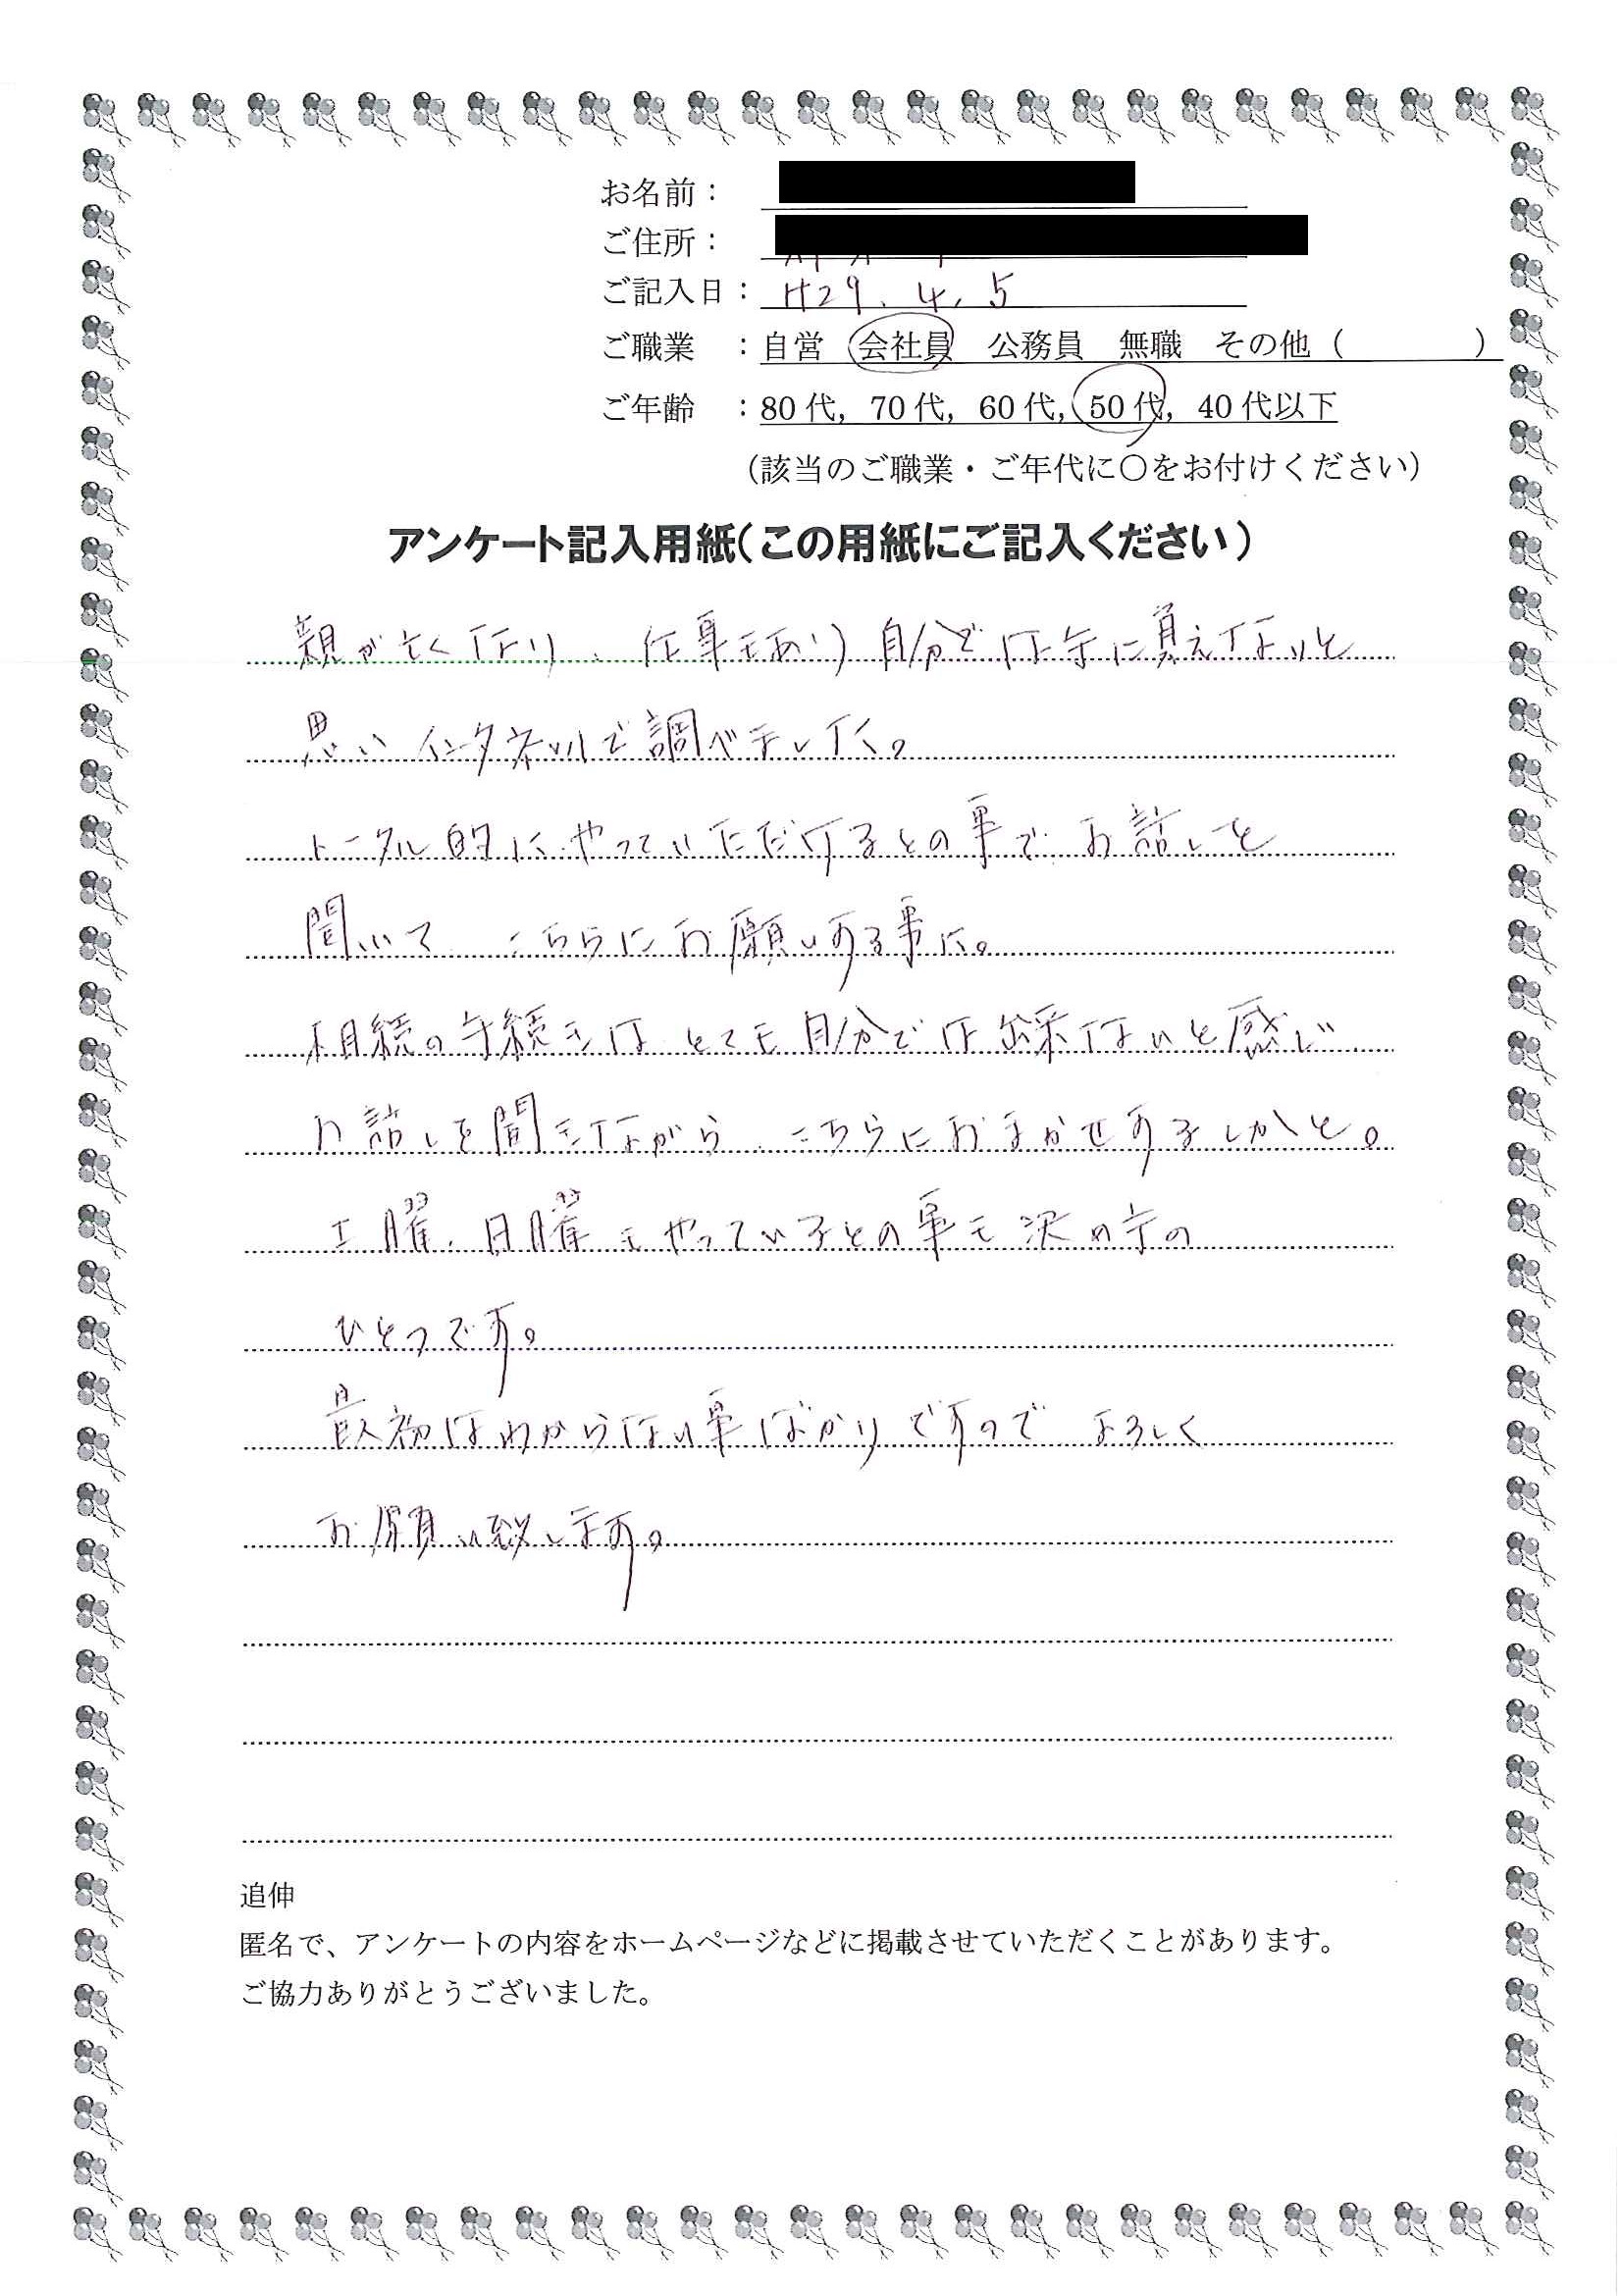 お名前：
ご住所：
ご記入日： H29. 4. 5
ご職業　：自営　会社員　公務員　無職　その他（　　　　）
ご年齢　：80代，70代，60代，50代，40代以下
（該当のご職業・ご年代に〇をお付けください）
アンケート記入用紙（この用紙にご記入ください）
親が亡くなり、仕事もあり自分では手に負えないと
思いインタネットで調べました。
トータル的にやっていただけるとの事で お話しを
聞いて こちらにお願いする事に。
相続の手続きは とても自分では出来ないと感じ
お話しを聞きながら こちらにおまかせするしかと。
土曜、日曜もやっているとの事も決め手の
ひとつです。
最初はわからない事ばかりですので よろしく
お願い致します。
追伸
匿名で、アンケートの内容をホームページなどに掲載させていただくことがあります。
ご協力ありがとうございました。